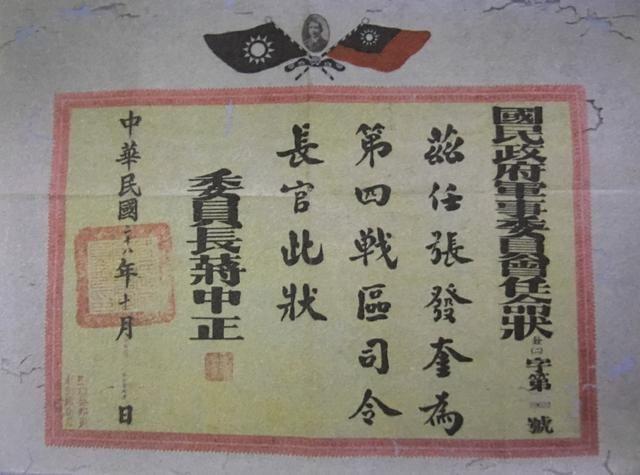 國民政府軍事委員會任命狀
字第 號
茲任張發奎為
第四戰區司令
長官此狀
委員長蔣中正
中華民國二十八年十月 日